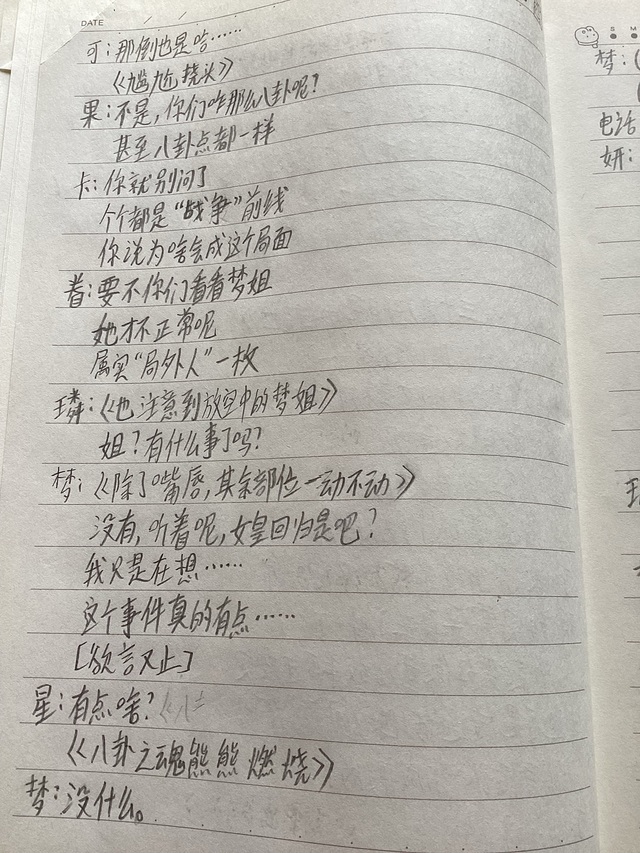 DATE
可：那倒也是哈……
《尴尬挠头》
果：不是，你们咋那么八卦呢？
甚至八卦点都一样
卡：你就别问了
个个都是“战争”前线
你说为啥会成这个局面
着：要不你们看看梦姐
她才不正常呢
属实“局外人”一枚
璘：《也注意到放空中的梦姐》
姐？有什么事了吗？
梦：《除了嘴唇，其余部位一动不动》
没有，听着呢，女皇回归是吧？
我只是在想……
这个事件真的有点……
[欲言又止]
星：有点啥？《八
《八卦之魂熊熊燃烧》
梦：没什么。
S M
梦：（
（
电话
妍：